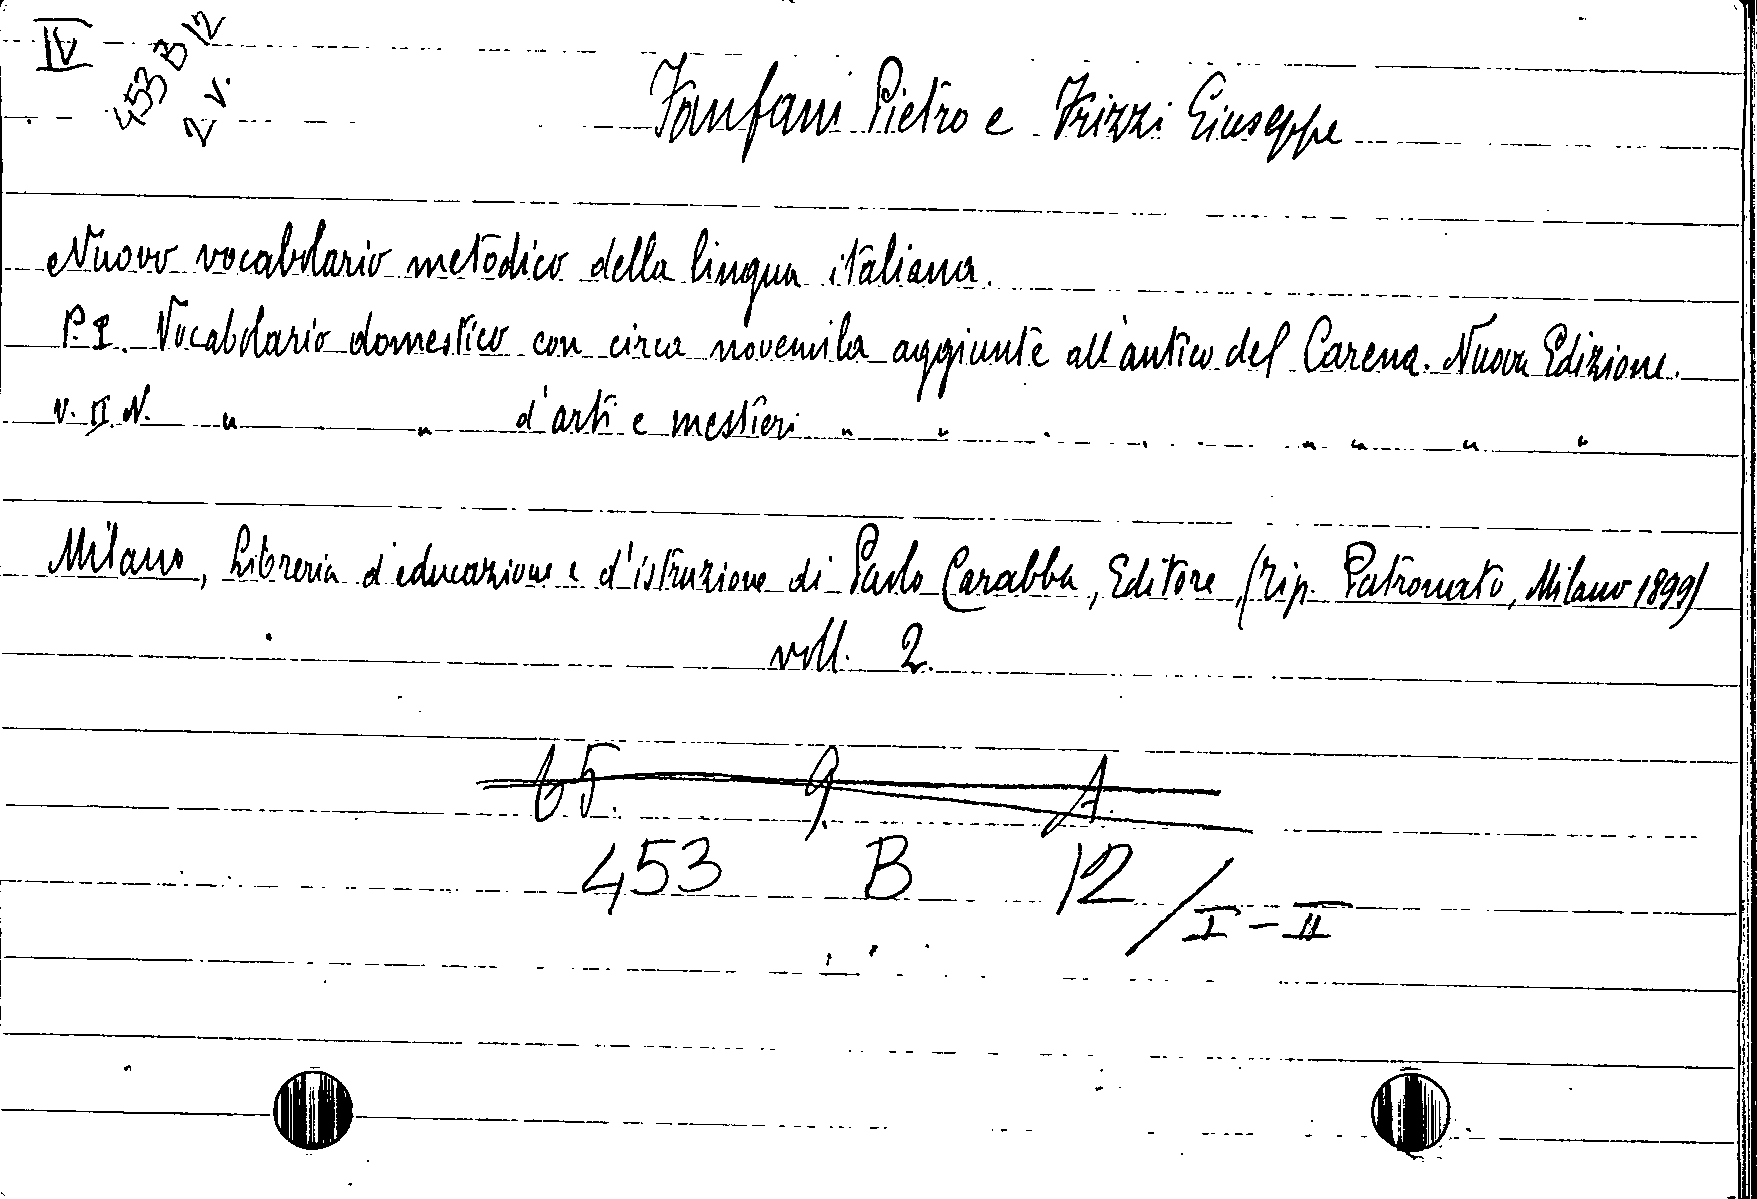 IV
453 B 12
2 v.
Fanfani Pietro e Frizzi Giuseppe
Nuovo vocabolario metodico della lingua italiana.
P. I. Vocabolario domestico con circa novemila aggiunte all'antico del Carena. Nuova Edizione.
V. II. N. " " d'arti e mestieri " " " " " " " "
Milano, Libreria d'educazione e d'istruzione di Paolo Carabba, Editore, (Tip. Patronato, Milano 1899)
voll. 2.
65. 9. A.
453 B 12 / I - II